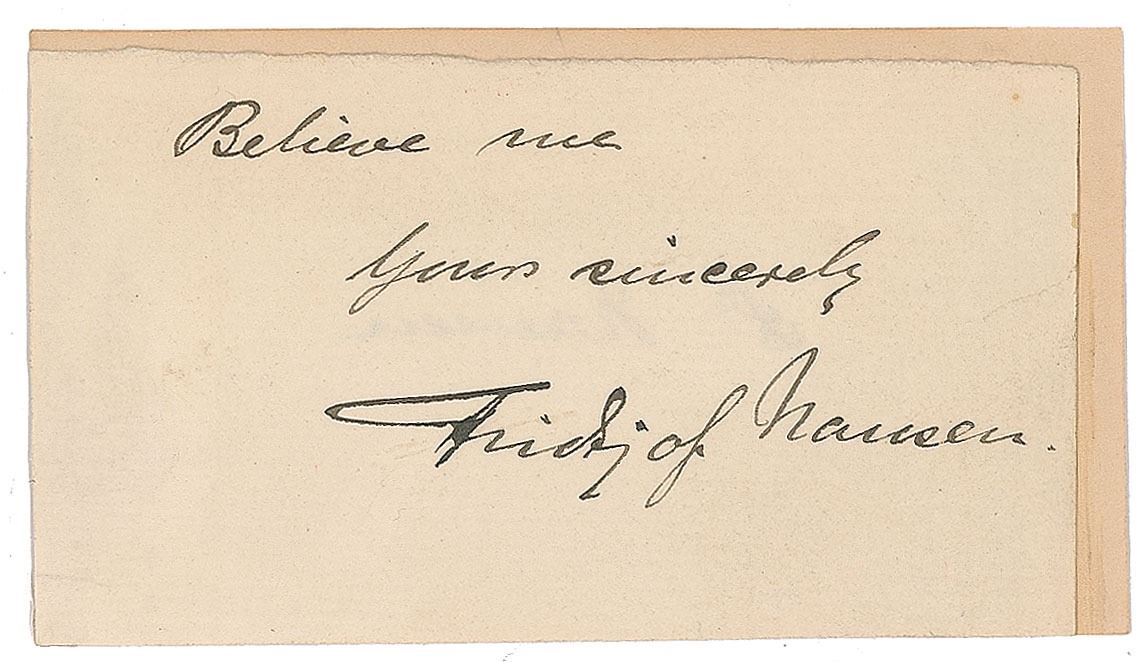 Believe me
Yours sincerely
Fridtjof Nansen.